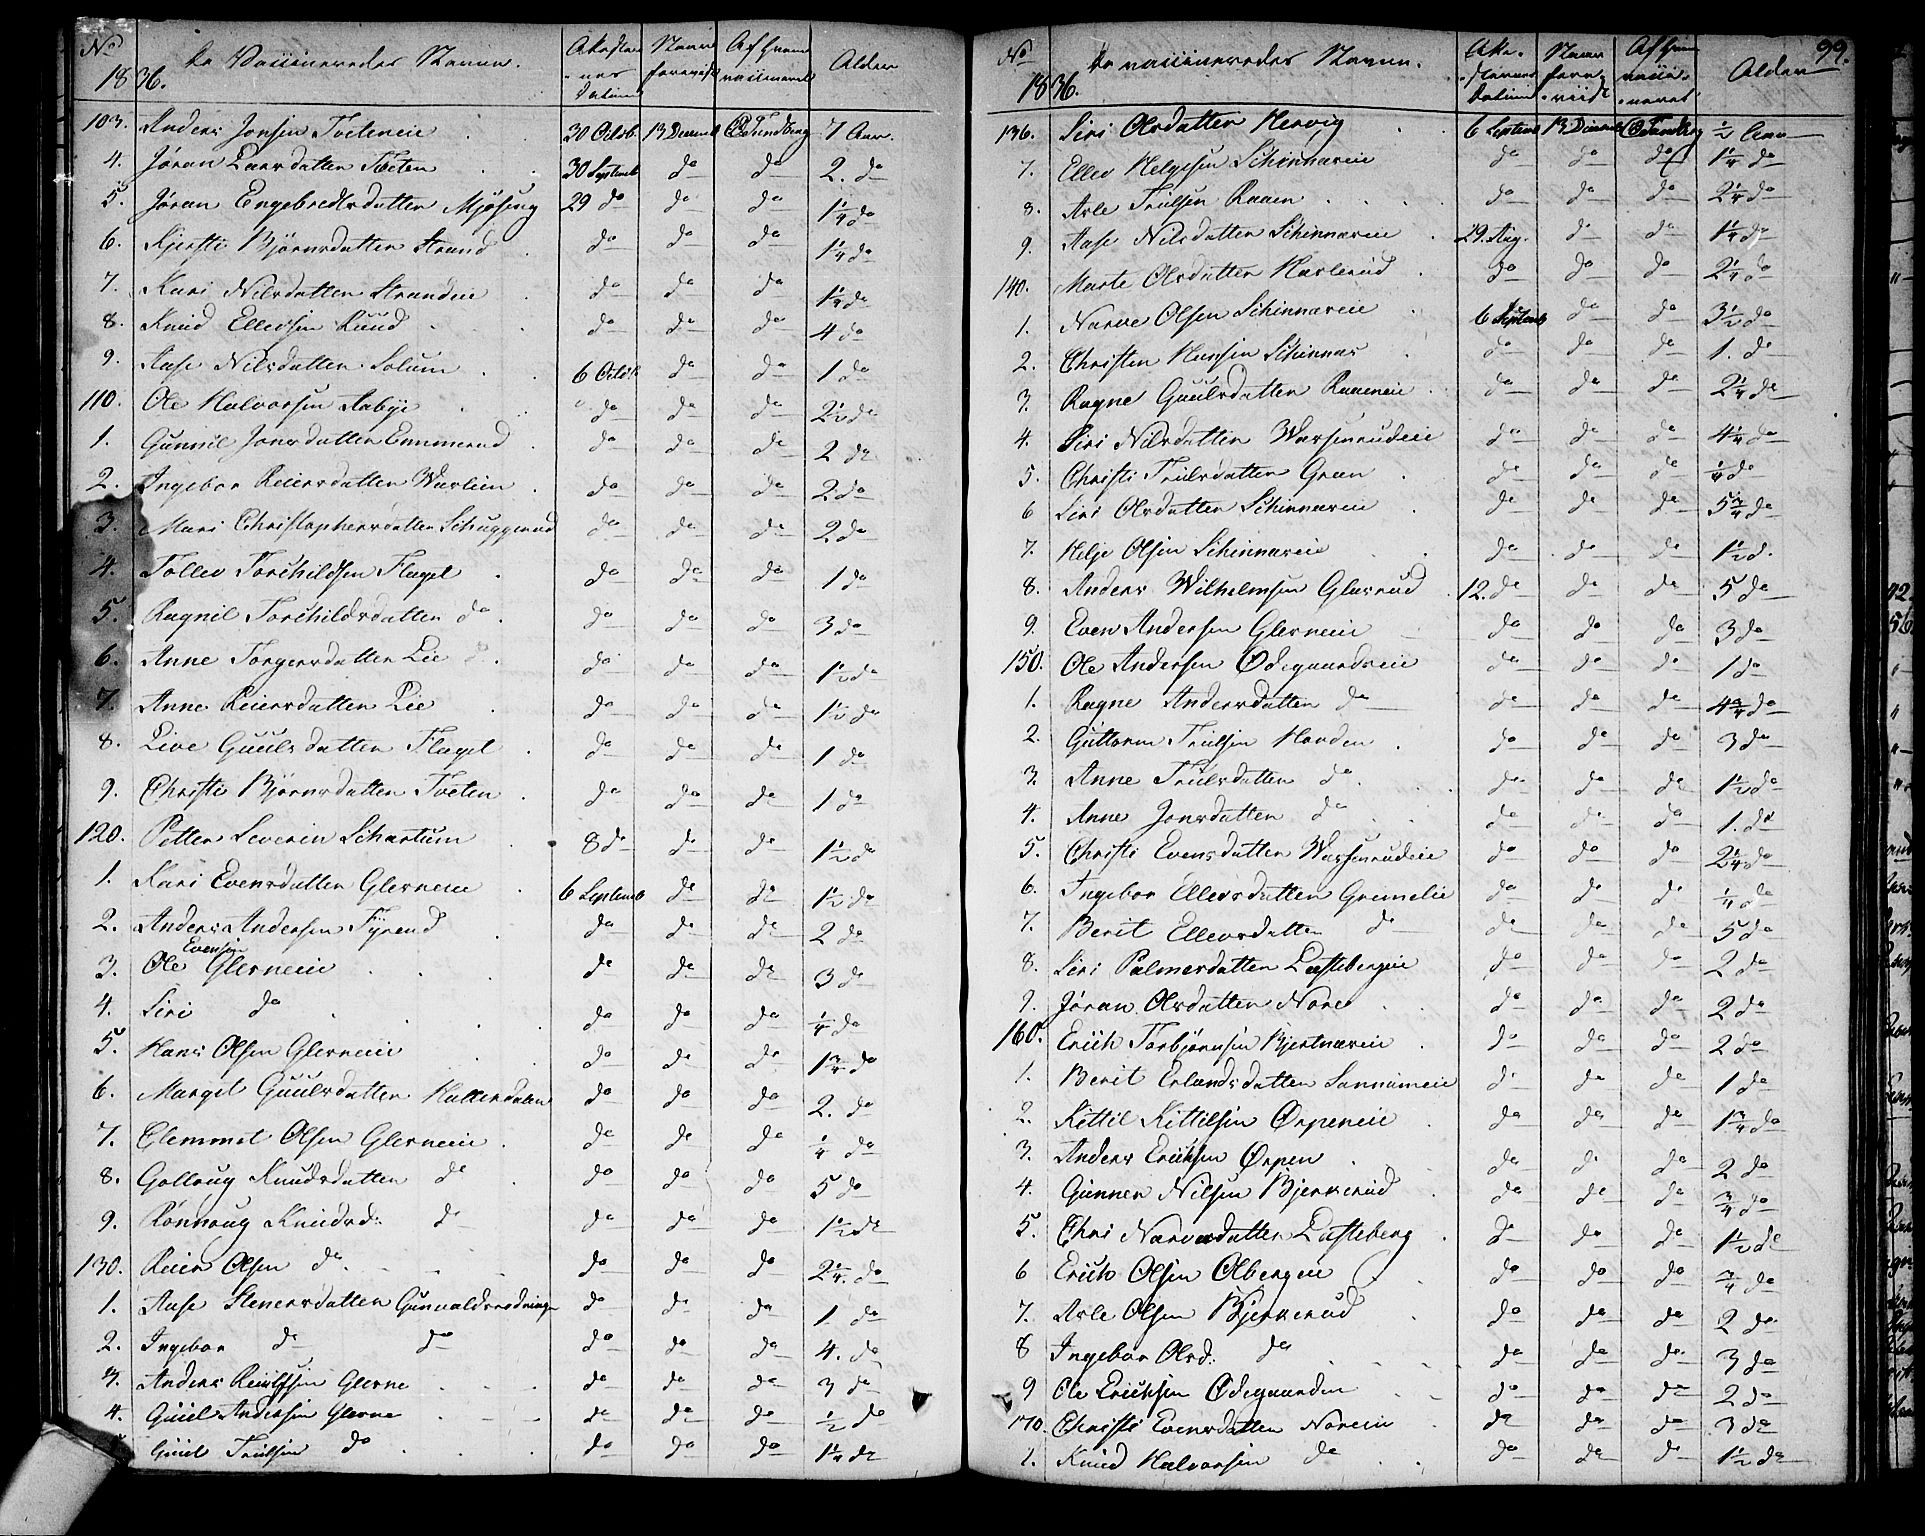 No de Vaccineredes Navne. Attestens Datum Naar foreviist Af hvem vaccineret Alder
1836.
103. Anders Jonsen Tveteneie 30 Octob. 13 Decemb. C Tandberg 7 Aar.
4. Jøran Larsdatter Tveten 30 Septemb do do 2. do
5. Jøran Engebretsdatter Mjøseng 29 do do do 1¼ do
6. Kjersti Bjørnsdatter Strand do do do 1¼ do
7. Kari Nilsdatter Strandeie do do do 1¼ do
8. Knud Ellevsen Ruud do do do 4 do
9. Aase Nilsdatter Solum 6 Octob. do do 1 do
110. Ole Halvorsen Aabye do do do 2½ do
1. Gunnil Jonsdatter Emmerud do do do 2 do
2. Ingebor Reiersdatter Warlien do do do 2 do
3. Mari Christophersdatter Schuggerud do do do 2 do
4. Tollev Torchildsen Flagel do do do 1 do
5. Ragnil Torchildsdatter do do do do 3 do
6. Anne Torgersdatter Lie do do do 1½ do
7. Anne Reiersdatter Lie do do do 1½ do
8. Live Guulsdatter Flagel do do do 1 do
9. Christi Bjørnsdatter Tveten do do do 1 do
120. Petter Severin Schartum 8 do do do 1½ do
1. Kari Evensdatter Glerneie 6 Septemb do do 1½ do
2. Anders Andersen Fyrend do do do 2 do
3. Ole Evensen Glerneie do do do 3 do
4. Siri do do do do ¼ do
5. Hans Olsen Glerneie do do do 1¾ do
6. Margit Guulsdatter Hallendalen do do do 2. do
7. Clemmet Olsen Glerneie do do do ¼ do
8. Golloug Knudsdatter do do do do 5 do
9. Rønnoug Knudsd: do do do do 1½ do
130. Reier Olsen do. do do do 2¼. do
1. Aase Stenersdatter Gunvaldsrødninge do do do 1. do
2. Ingebor do do do do do 4. do
3. Anders Reiersen Glerne do do do 3 do
4. Guul Andersen Glerne do do do ½ do
Guul Trulsen do do do do 1¼ do
99.
No de vaccineredes Navne. Attestens Datum Naar foreviist Af hvem vaccineret Alder
1836.
136. Siri Olsdatter Hervig 6 Septemb 13 Decemb C Tandberg ½ Aar
7. Ellev Helgesen Schinnareie do do do 1¼ do
8. Asle Trulsen Raaen do do do 2¼ do
9. Aase Nilsdatter Schinnareie 29. Aug. do do 1¼ do
140. Marte Olsdatter Haslerud do do do 2¼ do
1. Narve Olsen Schinnareie 6 Septemb do do 3½ do
2. Christen Hansen Schinnas do do do 1. do
3. Ragne Guulsdatter Raaeneie do do do 2¼ do
4. Siri Nilsdatter Warsenrudeie do do do 4¼ do
5. Christi Trulsdatter Gran do do do ¼ do
6 Siri Olsdatter Schinnareie do do do 5¾ do
7. Helje Olsen Schinnareie do do do 1½ d.
8. Anders Wilhelmsen Glasrud 12. do do do 5 do
9. Even Andersen Glerneie do do do 3 do
150. Ole Andersen Ødegaardseie do do do 1 do
1. Ragne Andersdatter do do do do 4¾ do
2. Guttorm Trulsen Horden do do do 3 do
3. Anne Trulsdatter do do do do 1½ do
4. Anne Jonsdatter do do do do 1. do
5. Christi Evensdatter Warsenrudeie do do do 2¼ do
6. Ingebor Ellevsdatter Gremelie do do do ¼ do
7. Berit Ellevsdatter do do do do 5 do
8. Siri Palmersdatter Lofsbergeie do do do 2 do
9. Jøran Olsdatter Nore do do do 2 do
160. Erich Torbjørnsen Bjertnæseie do do do 2 do
1. Berit Erlandsdatter Sannumeie do do do 1 do
2. Kittil Kittilsen Ørpeneie do do do 1¾ do
3. Anders Erichsen Ørpen do do do 2 do
4. Gunner Nilsen Bjerkerud do do do ¾ do
5. Chri Narvesdatter Lofsteberg do do do 1½ do
6 Erich Olsen Olbergeie do do do ¾ do
7. Asle Olsen Bjerkerud do do do 2 do
8 Ingebor Olsd: do do do do 3 do
9 Ole Erichsen Ødegaarden do do do 2 do
170. Christi Evensdatter Noreeie do do do 3 do
1. Knud Halvorsen do do do do 1½ do